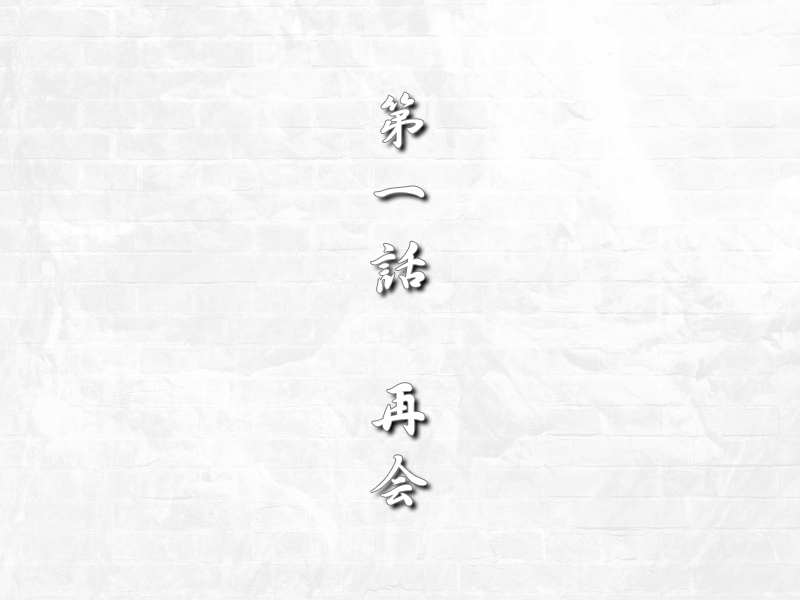 第一話　再会